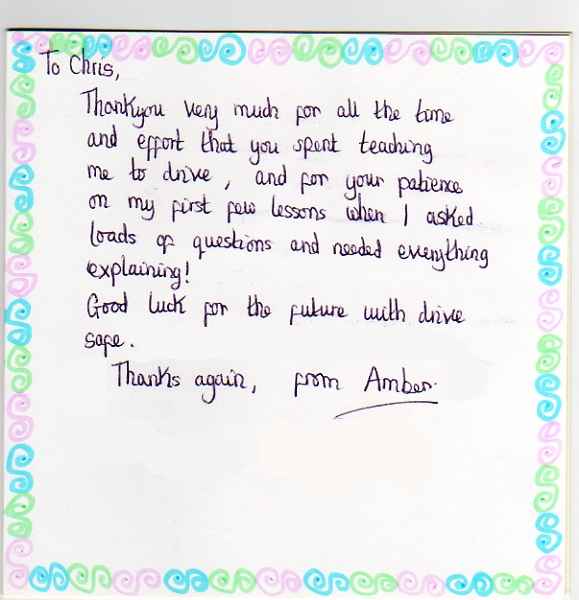 To Chris,
Thankyou very much for all the time
and effort that you spent teaching
me to drive, and for your patience
on my first few lessons when I asked
loads of questions and needed everything
explaining!
Good luck for the future with drive
safe.
Thanks again, from Amber.